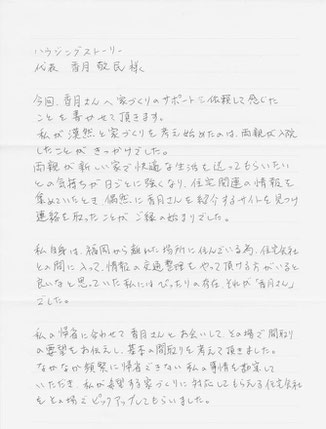 ハウジングストーリー
代表 香月 敬民 様へ
今回、香月さんへ家づくりのサポートを依頼して感じた
ことを書かせて頂きます。
私が漠然と家づくりを考え始めたのは、両親が入院
したことがきっかけでした。
両親が新しい家で快適な生活を送ってもらいたい
との気持ちが日ごとに強くなり、住宅関連の情報を
集めていたとき、偶然に香月さんを紹介するサイトを見つけ
連絡を取ったことがご縁の始まりでした。
私自身は、福岡から離れた場所に住んでいる為、住宅会社
との間に入って、情報の交通整理をやって頂ける方がいると
良いなと思っていた私にはぴったりの存在、それが「香月さん」
でした。
私の帰省に合わせて香月さんとお会いして、その場で間取り
の要望をお伝えし、基本の間取りを考えて頂きました。
なかなか頻繁に帰省できない私の事情を勘案して
いただき、私が希望する家づくりに対応してもらえる住宅会社
をその場でピックアップしてもらいました。